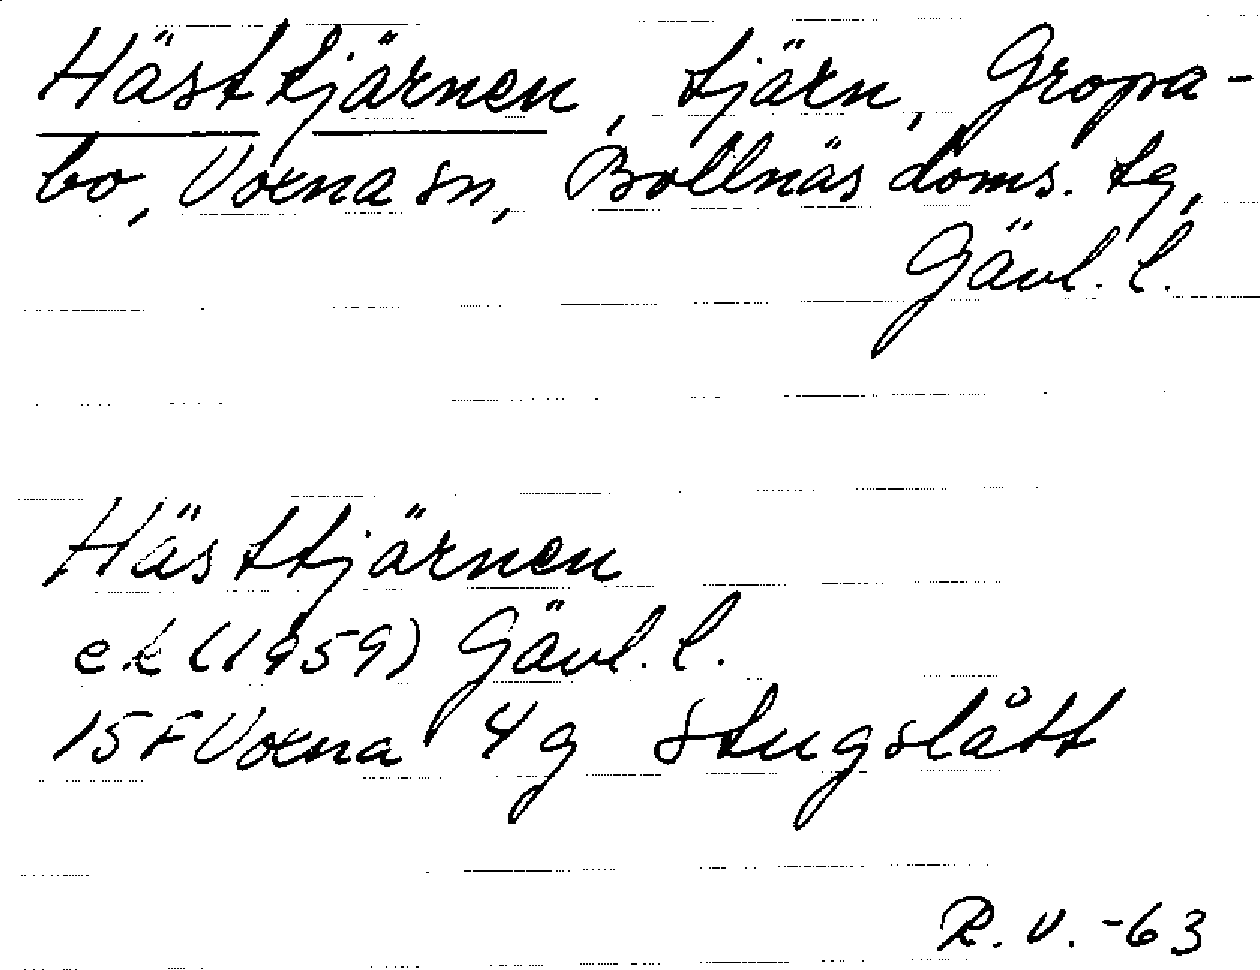 Hästtjärnen, tjärn, Gropa-
bo, Voxna sn, Bollnäs doms. tg,
Gävl. l.
Hästtjärnen
ek (1959) Gävl. l.
15F Voxna 4g Stugslått
R. V. -63